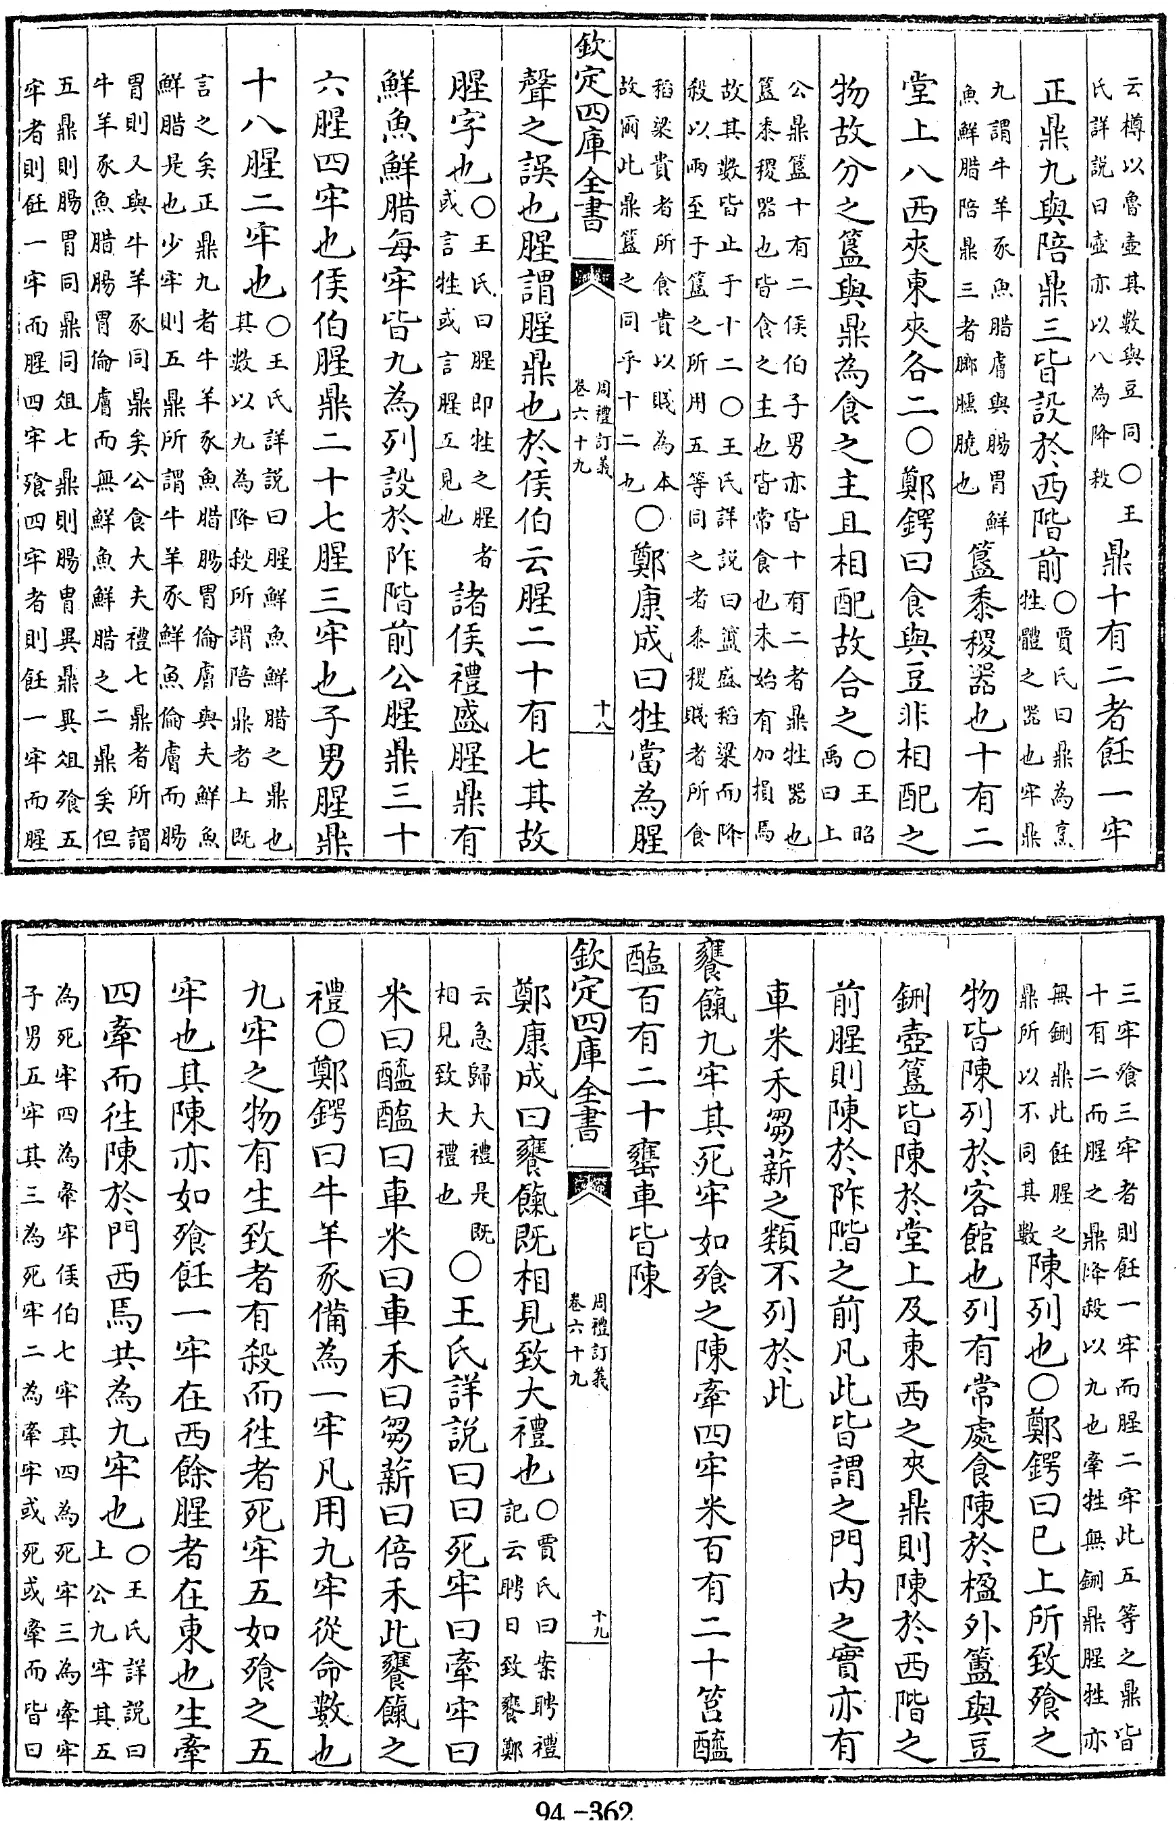 云樽以魯壺其數與豆同〇王
氏詳說曰壺亦以八為降殺
鼎十有二者飪一牢
正鼎九與陪鼎三皆設於西階前
〇賈氏曰鼎為烹
牲體之器也牢鼎
九謂牛羊豕魚腊膚與腸胃鮮
魚鮮腊陪鼎三者膷臐膮也
簋黍稷器也十有二
堂上八西夾東夾各二〇鄭鍔曰食與豆非相配之
物故分之簋與鼎為食之主且相配故合之
〇王昭
禹曰上
公鼎簋十有二侯伯子男亦皆十有二者鼎牲器也
簋黍稷器也皆食之主也皆常食也未始有加損焉
故其數皆止于十二〇王氏詳說曰簠盛稻粱而降
殺以兩至于簋之所用五等同之者黍稷賤者所食
稻粱貴者所食貴以賤為本
故爾此鼎簋之同乎十二也
〇鄭康成曰牲當為腥
欽定四庫全書
周禮訂義
卷六十九
十八
聲之誤也腥謂腥鼎也於侯伯云腥二十有七其故
腥字也
〇王氏曰腥即牲之腥者
或言牲或言腥互見也
諸侯禮盛腥鼎有
鮮魚鮮腊每牢皆九為列設於阼階前公腥鼎三十
六腥四牢也侯伯腥鼎二十七腥三牢也子男腥鼎
十八腥二牢也
〇王氏詳說曰腥鮮魚鮮腊之鼎也
其數以九為降殺所謂陪鼎者上既
言之矣正鼎九者牛羊豕魚腊腸胃倫膚與夫鮮魚
鮮腊是也少牢則五鼎所謂牛羊豕鮮魚倫膚而腸
胃則又與牛羊豕同鼎矣公食大夫禮七鼎者所謂
牛羊豕魚腊腸胃倫膚而無鮮魚鮮腊之二鼎矣但
五鼎則腸胃同鼎同俎七鼎則腸胄異鼎異俎飧五
牢者則飪一牢而腥四牢飧四牢者則飪一牢而腥
三牢飧三牢者則飪一牢而腥二牢此五等之鼎皆
十有二而腥之鼎降殺以九也牽牲無鉶鼎腥牲亦
無鉶鼎此飪腥之
鼎所以不同其數
陳列也〇鄭鍔曰已上所致飧之
物皆陳列於客館也列有常處食陳於楹外簠與豆
鉶壺簋皆陳於堂上及東西之夾鼎則陳於西階之
前腥則陳於阼階之前凡此皆謂之門內之實亦有
車米禾芻薪之類不列於此
饔餼九牢其死牢如飧之陳牽四牢米百有二十筥醯
醢百有二十罋車皆陳
欽定四庫全書
周禮訂義
卷六十九
十九
鄭康成曰饔餼既相見致大禮也
〇賈氏曰案聘禮
記云聘日致饔鄭
云急歸大禮是既
相見致大禮也
〇王氏詳說曰曰死牢曰牽牢曰
米曰醯醢曰車米曰車禾曰芻薪曰倍禾此饔餼之
禮〇鄭鍔曰牛羊豕備為一牢凡用九牢從命數也
九牢之物有生致者有殺而徃者死牢五如飧之五
牢也其陳亦如飧飪一牢在西餘腥者在東也生牽
四牽而徃陳於門西馬共為九牢也
〇王氏詳說曰
上公九牢其五
為死牢四為牽牢侯伯七牢其四為死牢三為牽牢
子男五牢其三為死牢二為牽牢或死或牽而皆曰
94-362